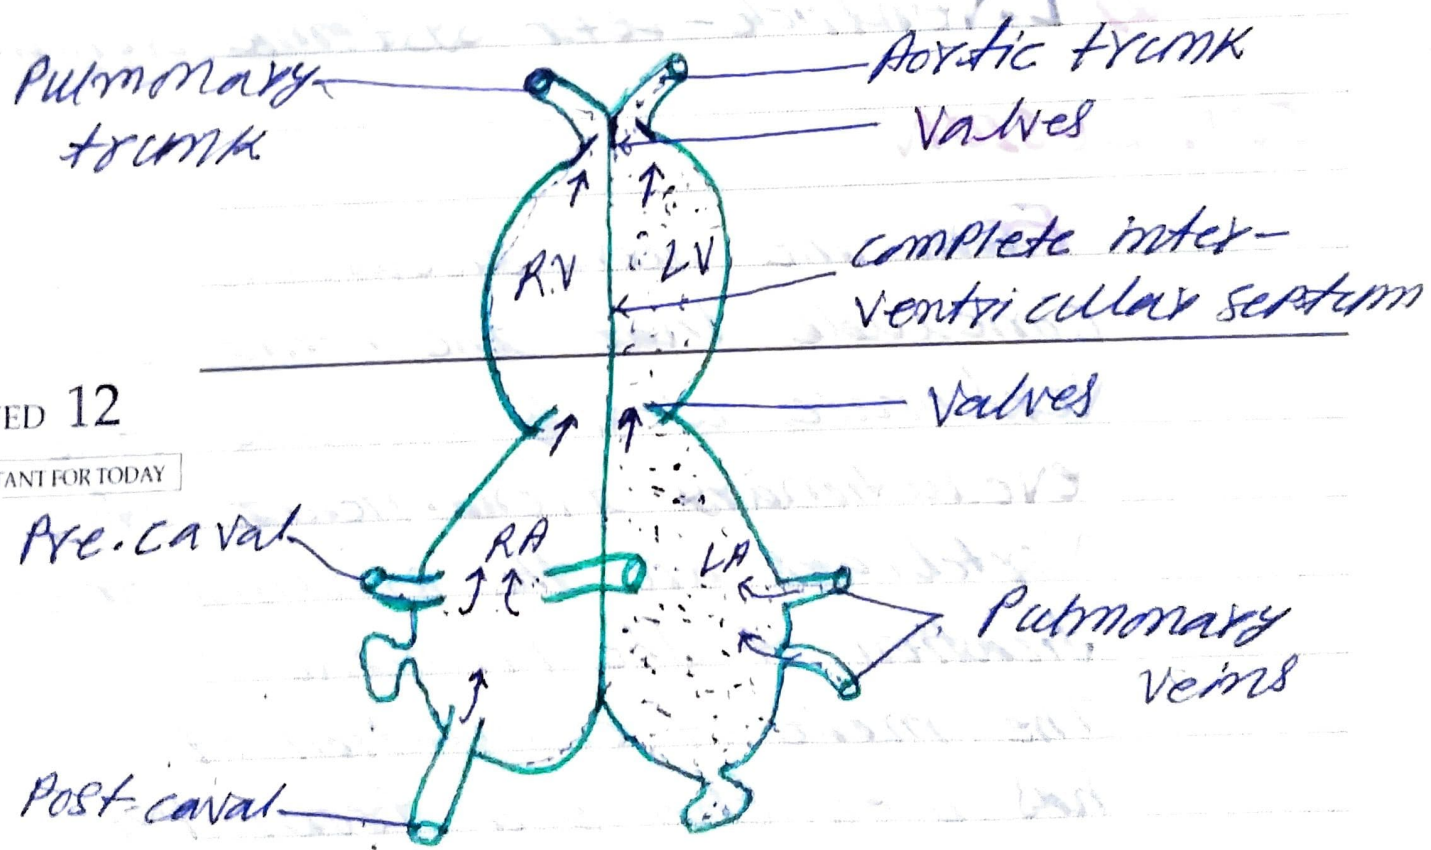 Pulmonary
trunk
Aortic trunk
Valves
complete inter-
ventricullar septum
R.V
LV
Valves
ED 12
TANT FOR TODAY
Pre.caval
RA
LA
Pulmonary
veins
Post-caval